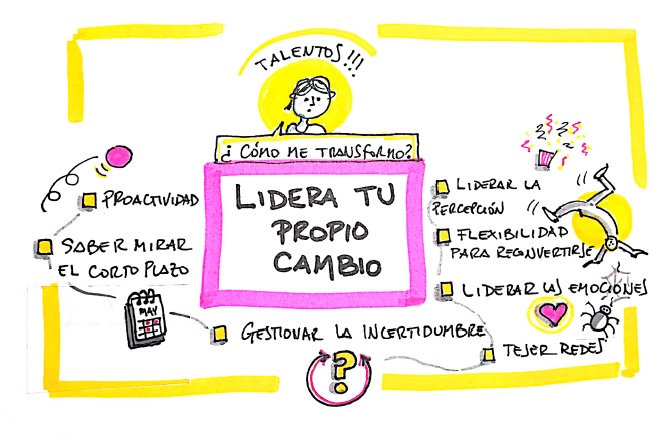 TALENTOS!!!
¿CÓMO ME TRANSFORMO?
LIDERA TU
PROPIO
CAMBIO
PROACTIVIDAD
SABER MIRAR
EL CORTO PLAZO
MAY
GESTIONAR LA INCERTIDUMBRE
?
LIDERAR LA
PERCEPCIÓN
FLEXIBILIDAD
PARA RECONVERTIRSE
LIDERAR LAS EMOCIONES
TEJER REDES